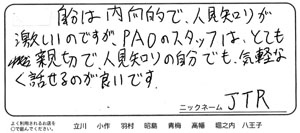 自分は内向的で、人見知りが
激しいのですが、PAOのスタッフは、とても
親切で、人見知りの自分でも、気軽な
く話せるのが良いです。
ニックネーム JTR
よく利用されるお店を
○で囲んでください。 立川 小作 羽村 昭島 青梅 高幡 堀之内 八王子